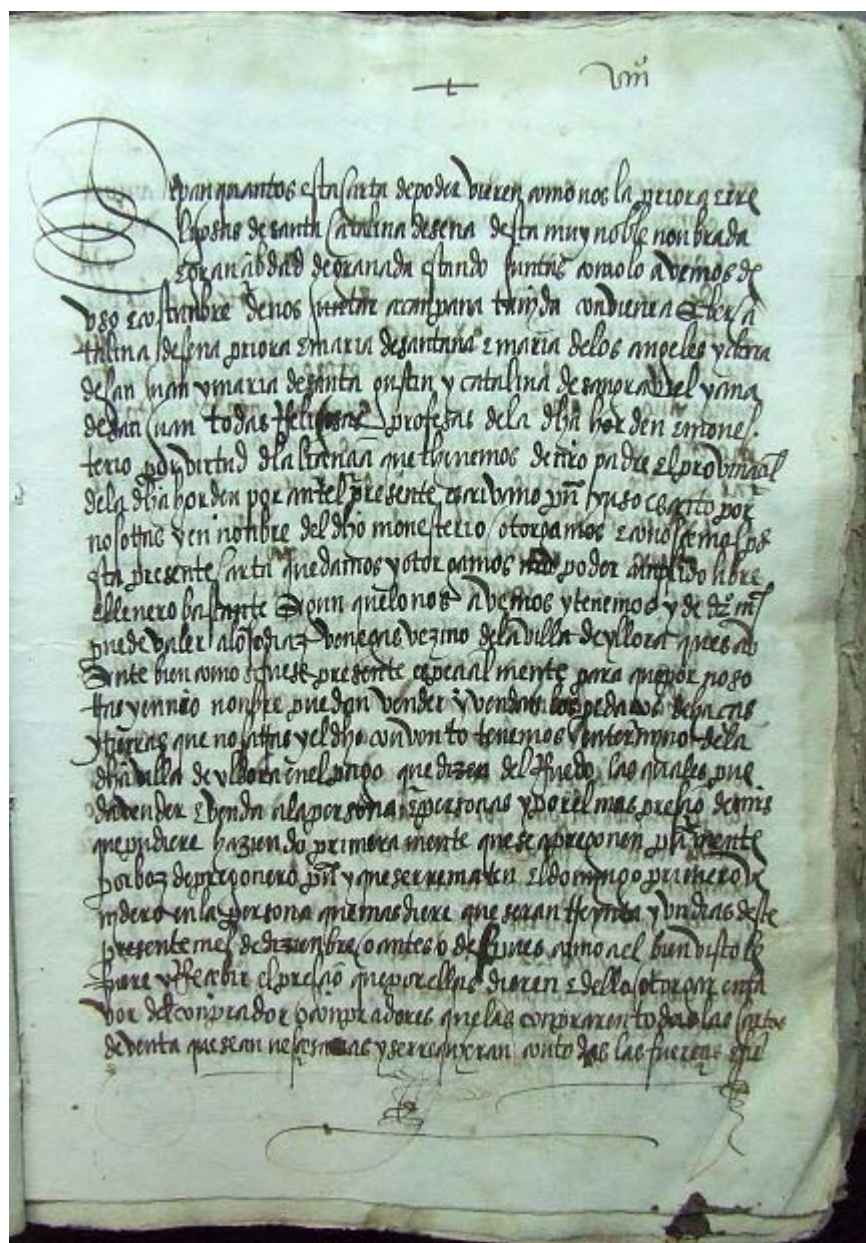 viii
Sepan quantos esta carta de poder vieren como nos la priora e rre
ligiosas de santa catalina de sena desta muy noble nonbrada
e gran çibdad de granada estando juntas como lo avemos de
uso e costunbre de nos juntar a canpana tañyda conviene a
talina de sena priora e maria de santana e maria de los angeles y
de san juan y maria de santa gustin y catalina de y ana
de san juan todas rreligiosas profesas de la dha horden e mones
terio por virtud que thenemos de nro padre el provinçial
de la dha horden por antel presente escrivano puco por
nosotras y en nonbre del dho monesterio otorgamos e conosçemos por
esta presente carta que damos y otorgamos poder conplido libre
e llenero bastante segun que lo nos avemos y tenemos y de drº mas
puede valer a alonso diaz venegas vezino de la villa de yllora ques ab
sente bien como si fuese presente espeçialmente para que por noso
tras y en nro nonbre puedan vender y vendan los pedaços de haças
y tierras que nosotras y el dho convento tenemos en termyno de la
dha villa de yllora en el pago que dizen del Ruedo las quales pue
da vender e venda a la persona e personas y por el mas presçio de mrs
que pudiere haziendo primeramente que se apregonen
por boz de pregonero puco y que se rrematen el domingo primero
nydero en la persona que mas diere que seran treynta y un dias deste
presente mes de dizienbre o antes o despues como a el bien visto le
fuere y Resçebir el presçio que por ellas dieren e dello otorgar en fa
vor del conprador o conpradores que las conpraren todas las cartas
de venta que sean nesçesarias y se rrequyeran con todas las fuerças